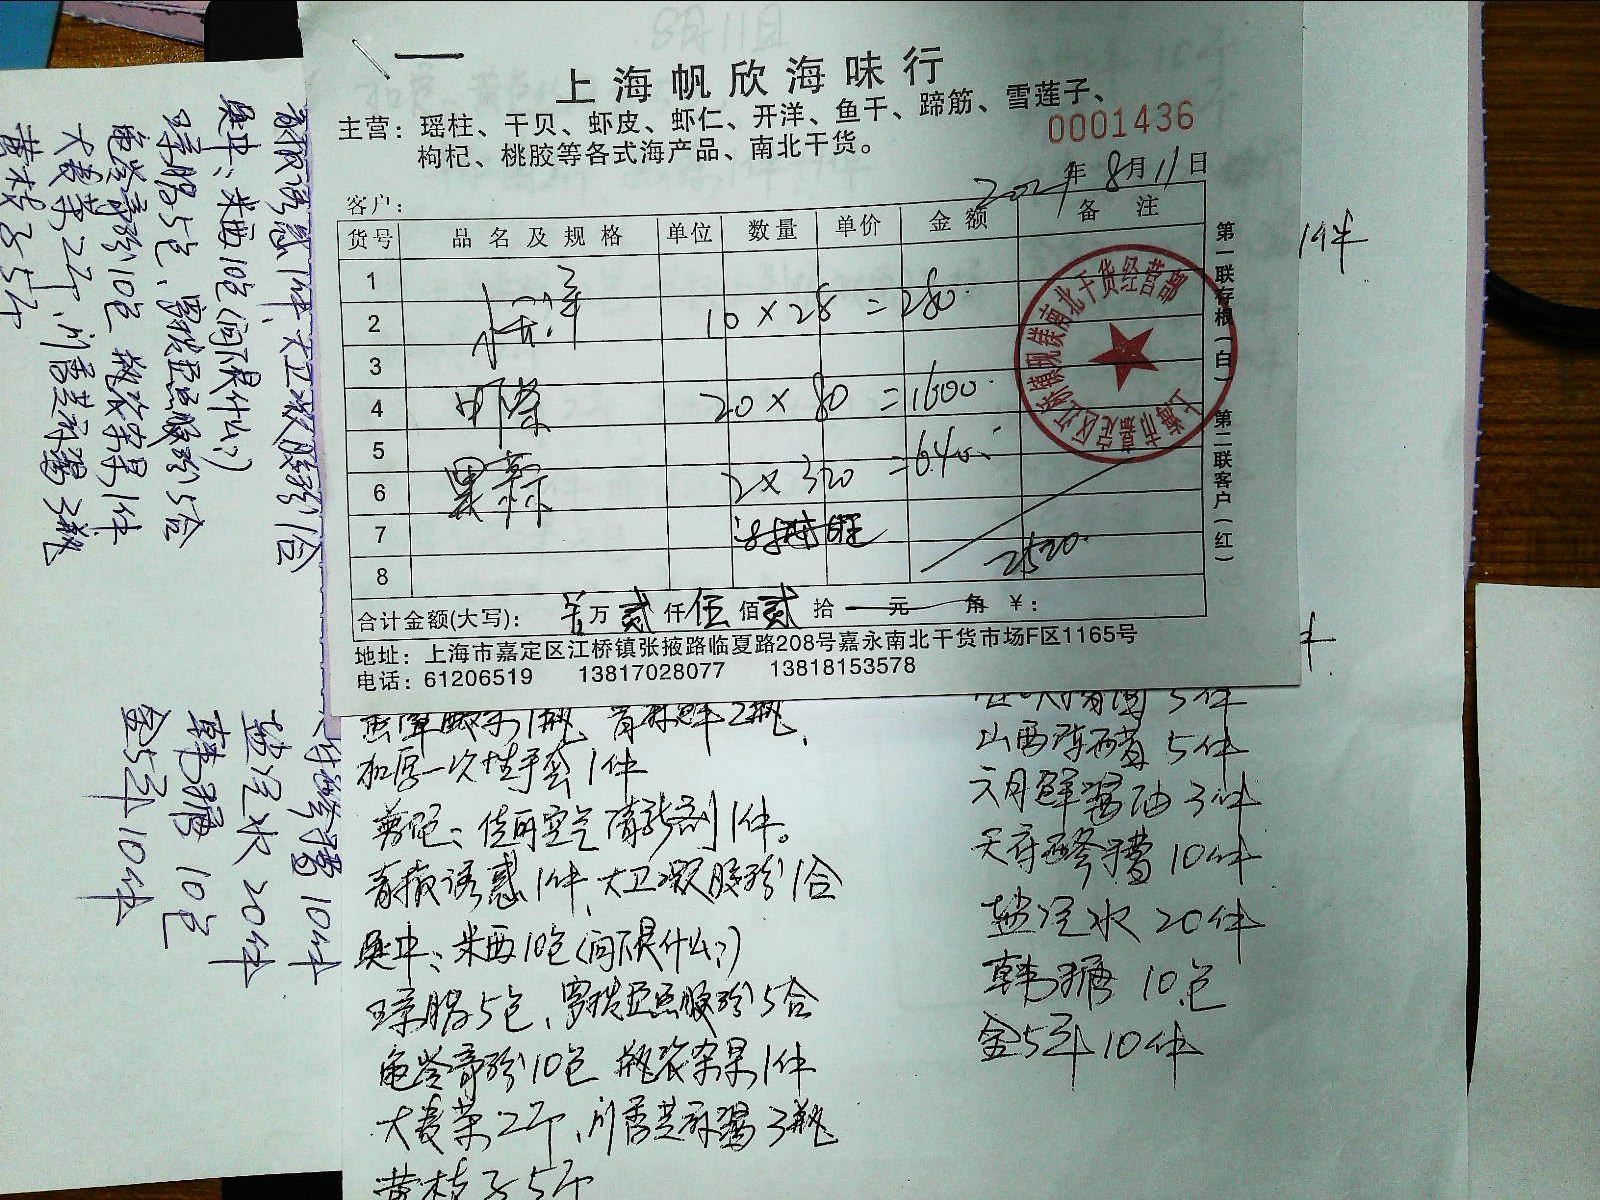 上海帆欣海味行
主营：瑶柱、干贝、虾皮、虾仁、开洋、鱼干、蹄筋、雪莲子、
枸杞、桃胶等各式海产品、南北干货。
0001436
年8月11日
客户：
货号 品名及规格 单位 数量 单价 金额 备注
1
2 10×28=280
3
4 20×80=1600
5
6 2×320=640
7
8 2520
合计金额(大写)： 万贰仟伍佰贰拾 元 角 ￥：
地址：上海市嘉定区江桥镇张掖路临夏路208号嘉永南北干货市场F区1165号
电话：61206519 13817028077 13818153578
第一联存根（白） 第二联客户（红）
南北干货经营部
1件
加厚一次性手套1件
佳丽空气清新剂1件。
青椒诱惑1件、大卫凝胶粉1合
奥中：米西10包（问下是什么？）
琼脂5包、罗拔臣鱼胶粉5合
龟苓膏粉10包 瓶装杂果1件
大麦茶2斤、川香芝麻酱3瓶
黄栀子5斤
5件
山西陈醋 5件
六月鲜酱油3件
天府醪糟10件
盐汽水 20件
韩糖 10包
金5年10件
青椒诱惑1件、大卫凝胶粉1合
奥中：米西10包（问下是什么？）
琼脂5包、罗拔臣鱼胶粉5合
龟苓膏粉10包 瓶装杂果1件
大麦茶2斤、川香芝麻酱3瓶
黄栀子5斤
醪糟10件
盐汽水 20件
韩糖 10包
金5年10件